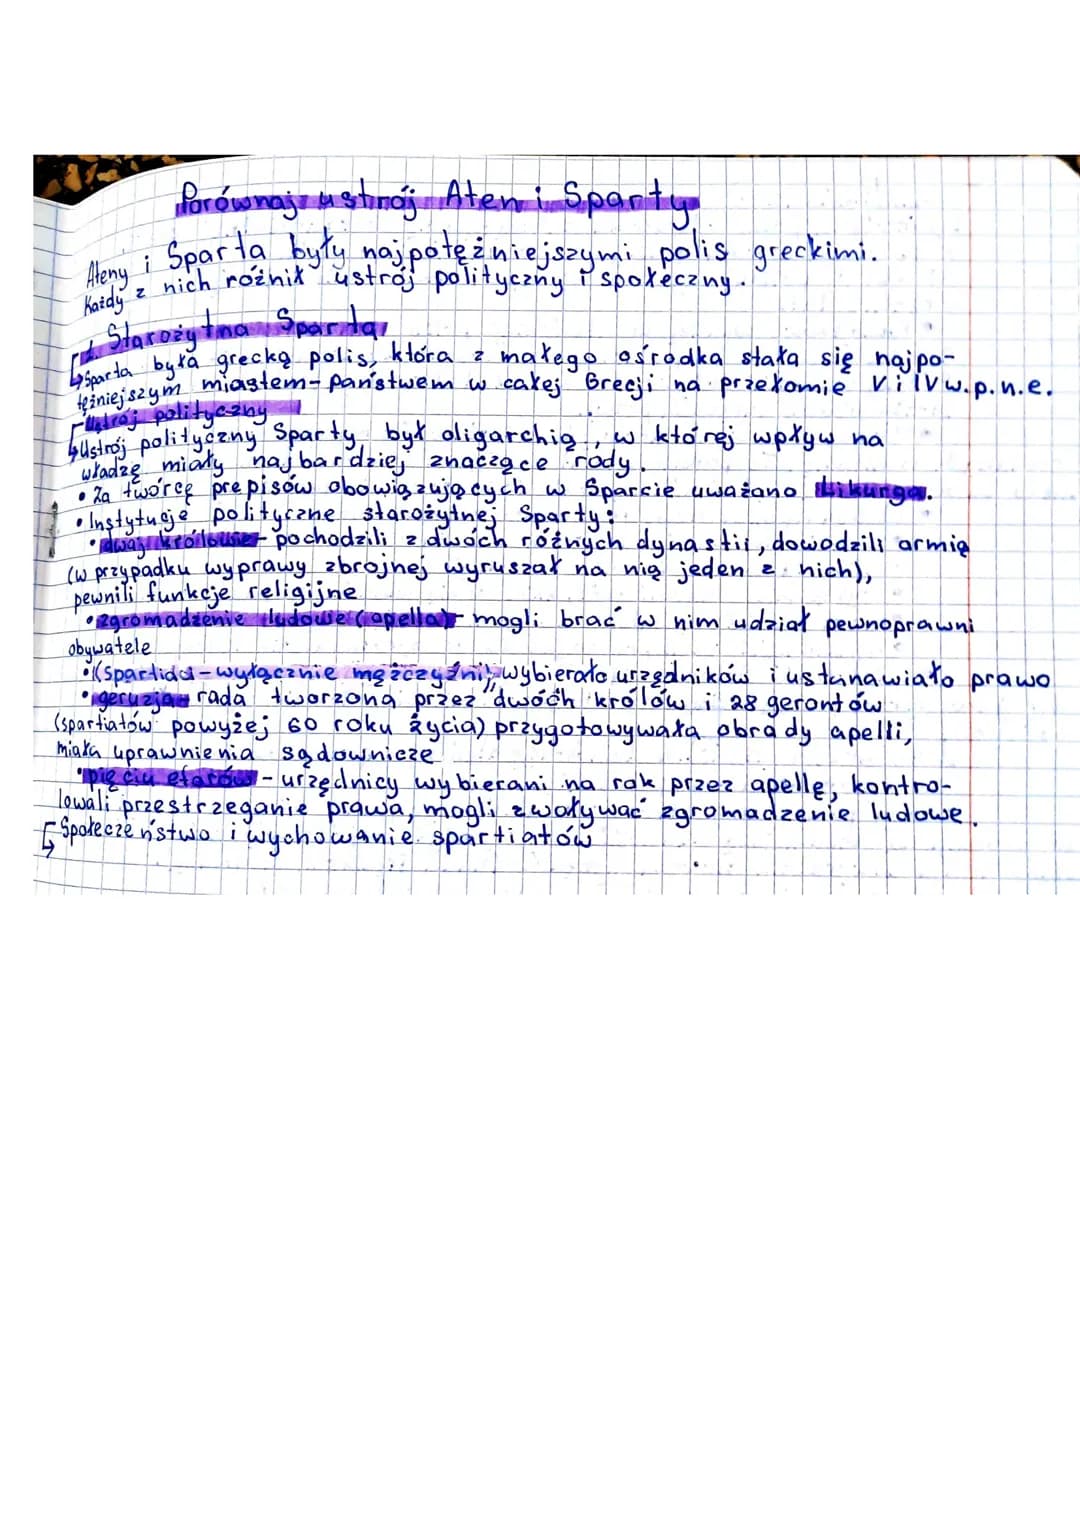 Porównaj ustrój Aten i Sparty
Ateny i Sparta były najpotężniejszymi polis greckimi.
Każdy z nich roźnił ustrój polityczny i społeczny.
1. Starożytna Sparta
↳Sparta była grecką polis, która z małego ośrodka stała się najpo-
tężniejszym miastem-państwem w całej Grecji na przełomie V i IV w.p.n.e.
Ustrój polityczny
↳Ustrój polityczny Sparty był oligarchią, w której wpływ na
władzę miały najbardziej znaczące rody.
• Za twórcę prepisów obowiązujących w Sparcie uważano Likurga.
• Instytucje polityczne starożytnej Sparty:
• dwaj królowie- pochodzili z dwóch różnych dynastii, dowodzili armią
(w przypadku wyprawy zbrojnej wyruszał na nią jeden z nich),
pewnili funkcje religijne
• zgromadzenie ludowe (apella)- mogli brać w nim udział pewnoprawni
obywatele
• (Spartiaci-wyłącznie mężczyźni), wybierało urzędników i ustanawiało prawo
• geruzja- rada tworzona przez dwóch królów i 28 gerontów
(spartiatów powyżej 60 roku życia) przygotowywała obrady apelli,
miała uprawnienia sądownicze
• pięciu eforów - urzędnicy wybierani na rok przez apellę, kontro-
lowali przestrzeganie prawa, mogli zwoływać zgromadzenie ludowe.
↳Społeczeństwo i wychowanie spartiatów